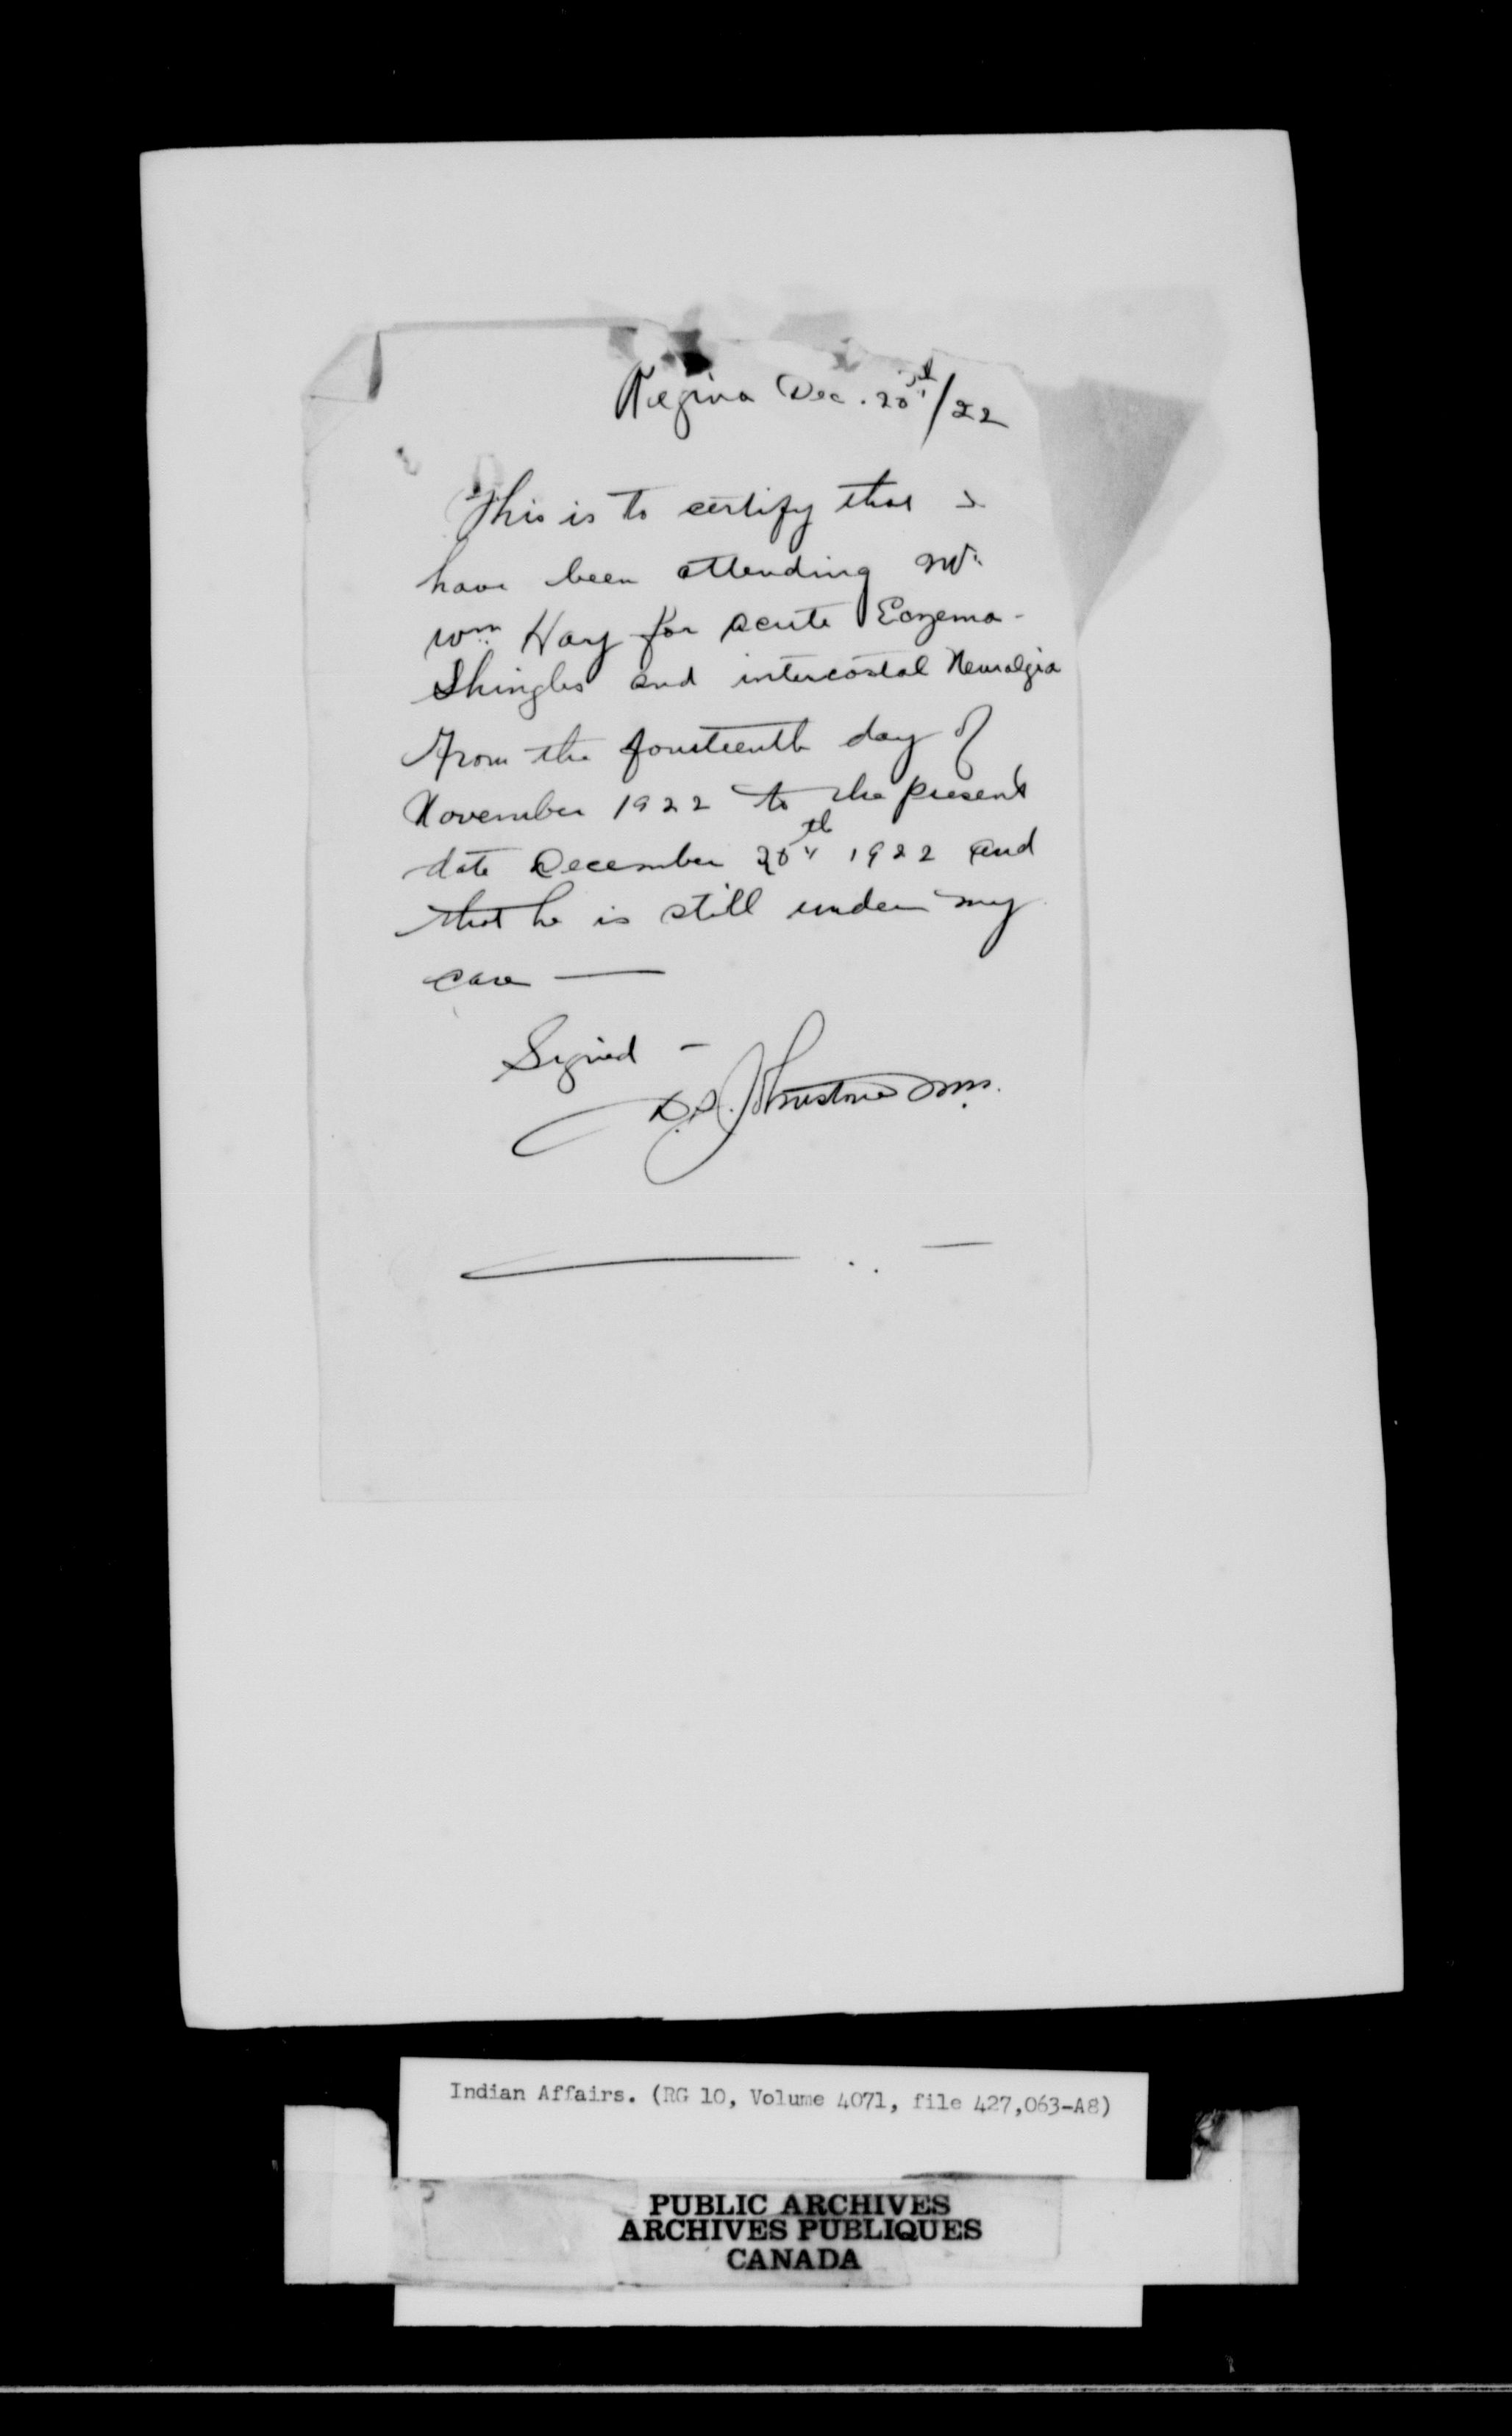 Regina Dec. 20th/22
This is to certify that I
have been attending Mr.
Wm Hay for acute Eczema -
Shingles and intercostal Neuralgia
From the fourteenth day of
November 1922 to the present
date December 20th 1922 and
that he is still under my
care —
Signed -
D.S. Johnstone MD.
Indian Affairs. (RG 10, Volume 4071, file 427,063-A8)
PUBLIC ARCHIVES
ARCHIVES PUBLIQUES
CANADA